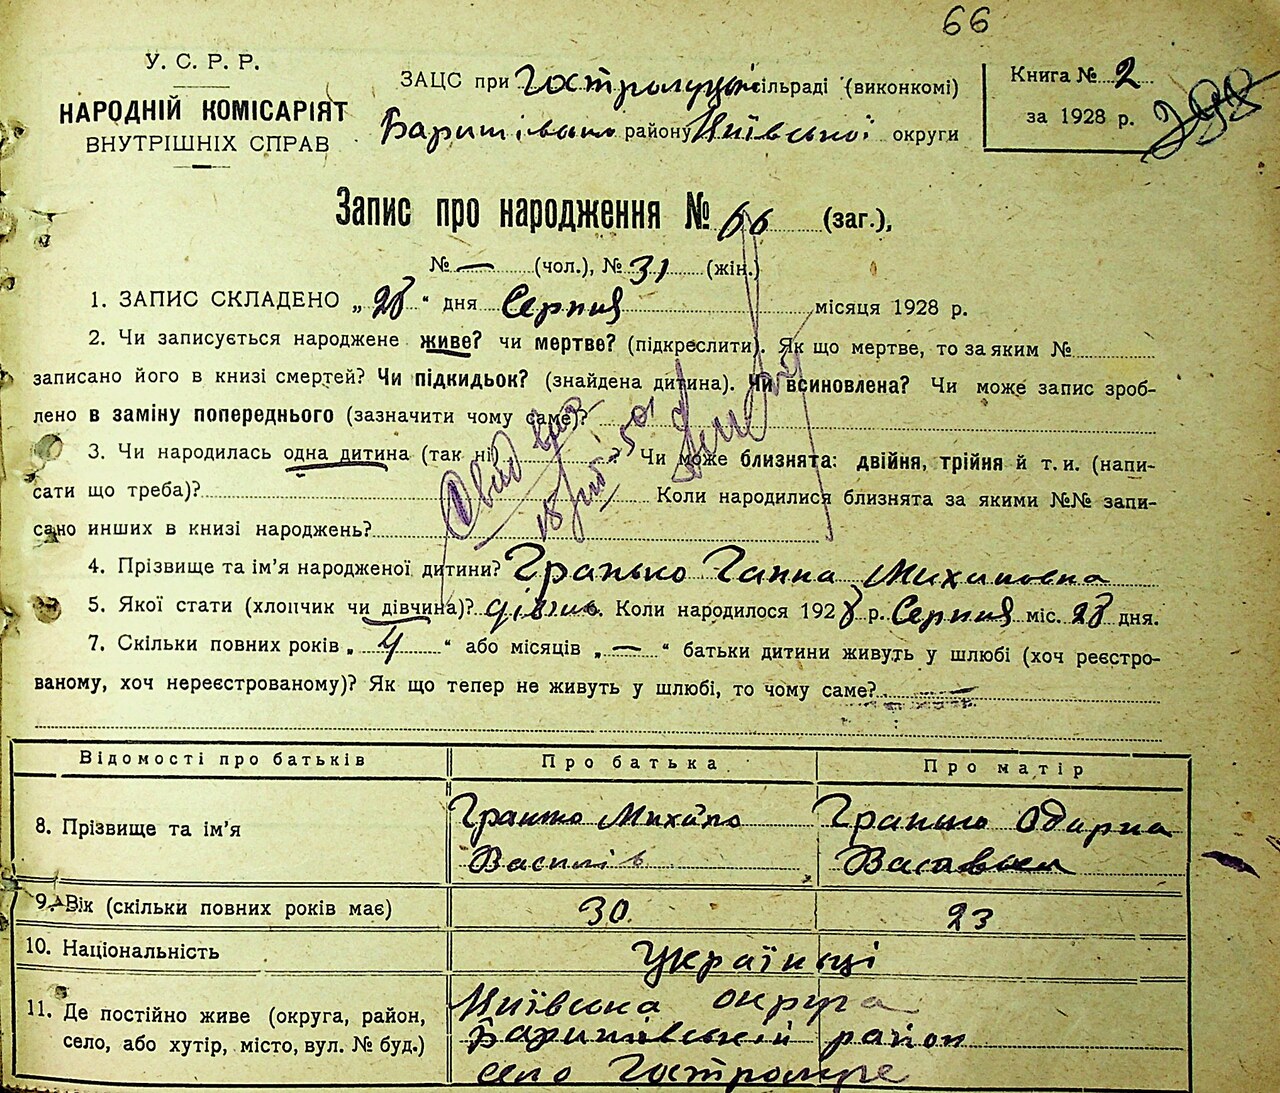 66
У. С. Р. Р.
НАРОДНІЙ КОМІСАРІЯТ
ВНУТРІШНІХ СПРАВ
ЗАЦС при Гостролуцькій сільраді (виконкомі)
Баришівськ району Київської округи
Книга № 2
за 1928 р.
Запис про народження № 66 (заг.),
№ — (чол.), № 31 (жін.)
1. ЗАПИС СКЛАДЕНО „28“ дня Серпня місяця 1928 р.
2. Чи записується народжене живе? чи мертве? (підкреслити). Як що мертве, то за яким №
записано його в книзі смертей? Чи підкидьок? (знайдена дитина). Чи всиновлена? Чи може запис зроб-
лено в заміну попереднього (зазначити чому саме)?
3. Чи народилась одна дитина (так ні) ? Чи може близнята: двійня, трійня й т. и. (напи-
сати що треба)? Коли народилися близнята за якими №№ запи-
сано инших в книзі народжень?
4. Прізвище та ім’я народженої дитини? Гранько Ганна Михайловна
5. Якої стати (хлопчик чи дівчина)? дівчин. Коли народилося 1928 р. Серпня міс. 28 дня.
7. Скільки повних років „4“ або місяців „—“ батьки дитини живуть у шлюбі (хоч реєстро-
ваному, хоч нереєстрованому)? Як що тепер не живуть у шлюбі, то чому саме? —
Відомості про батьків Про батька Про матір
8. Прізвище та ім’я Гранько Михайло Гранько Одарка
Василів
9. Вік (скільки повних років має) 30 23
10. Національність Українці
11. Де постійно живе (округа, район, Київська округа
село, або хутір, місто, вул. № буд.) Баришівський район
село Гостролуче